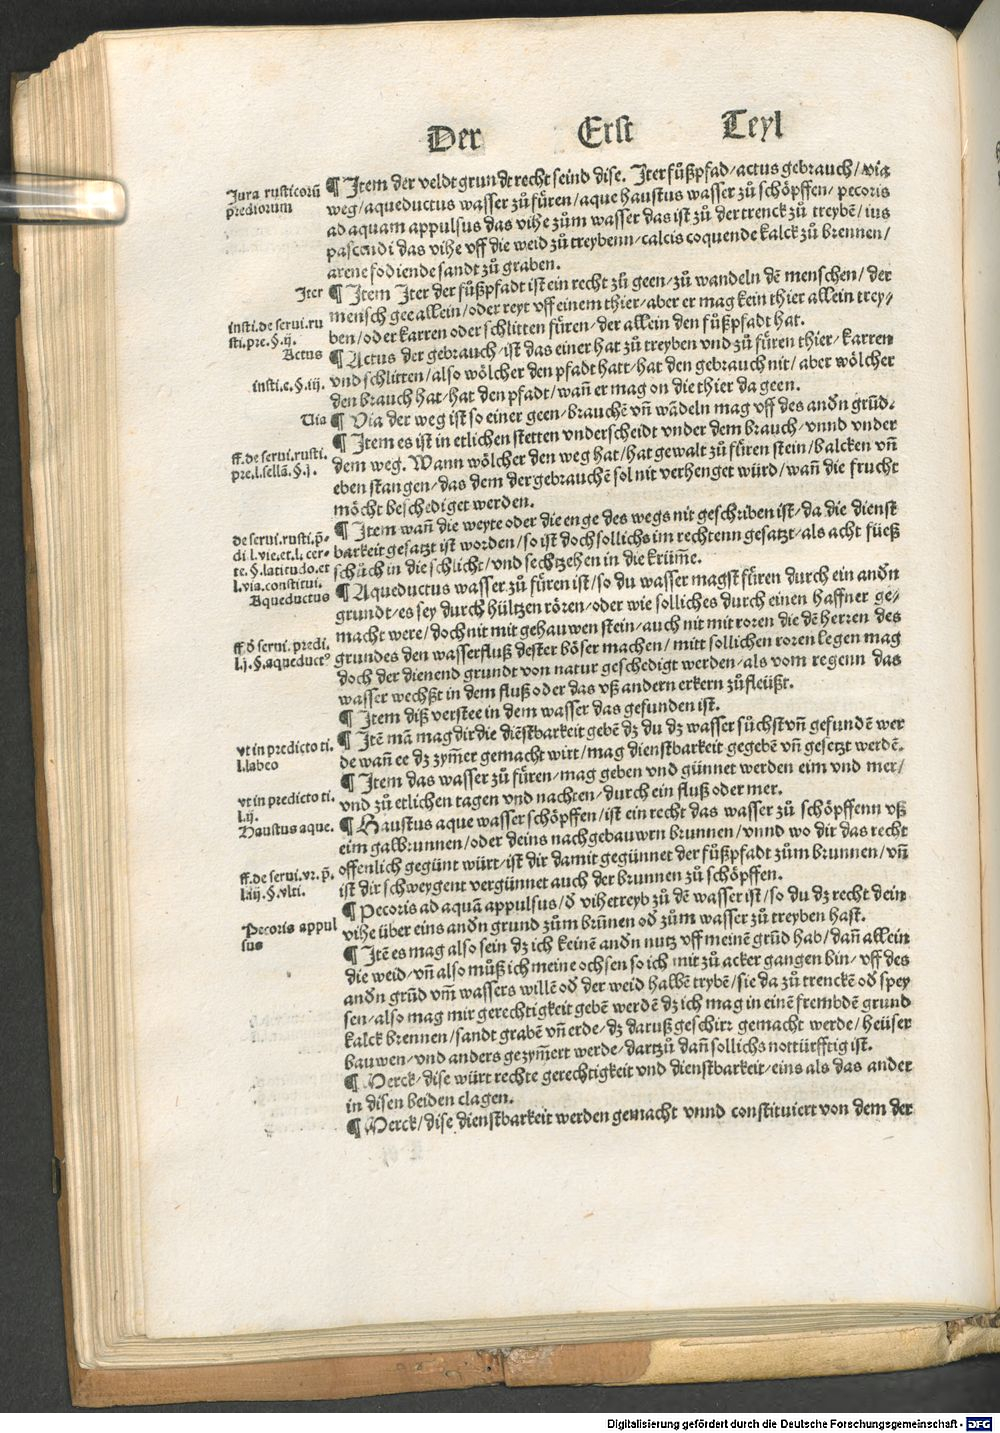 Der Erst Teyl
Jura rusticorū
prediorum
¶ Item der veldtgrundtrecht seind dise. Iter fůßpfad/actus gebrauch/via
weg/aqueductus wasser zů fůren/aque haustus wasser zů schöpffen/pecoris
ad aquam appulsus das vihe zům wasser das ist zů der trenck zů treybē/ius
pascendi das vihe vff die weid zů treybenn/calcis coquende kalck zů brennen/
arene fodiende sandt zů graben.
Iter
¶ Item Iter der fůßpfadt ist ein recht zů geen/zů wandeln dē menschen/der
mensch gee allein/oder reyt vff einem thier/aber er mag kein thier allein trey/
insti.de serui.ru
sti.pre.§.ij.
ben/oder karren oder schlitten fůren/der allein den fůßpfadt hat.
Actus
¶ Actus der gebrauch/ist das einer hat zů treyben vnd zů fůren thier/karren
insti.e.§.iij.
vnd schlitten/also wölcher den pfadt hatt/hat den gebrauch nit/aber wölcher
den brauch hat/hat den pfadt/wañ er mag on die thier da geen.
Via
¶ Via der weg ist so einer geen/brauchē vñ wādeln mag vff des andn grūd.
ff.de serui.rusti.
pre.l.sellā.§.j.
¶ Item es ist in etlichen stetten vnderscheidt vnder dem brauch/vnnd vnder
dem weg. Wann wölcher den weg hat/hat gewalt zů fůren stein/balcken vñ
eben stangen/das dem der gebrauchē sol nit verhenget würd/wañ die frucht
möcht beschediget werden.
de serui.rusti.p̄-
di l.vie.et.l.cer-
te.§.latitudo.et
l.via.constitui.
¶ Item wañ die weyte oder die enge des wegs nit geschriben ist/da die dienst
barkeit gesatzt ist worden/so ist doch sollichs im rechtenn gesatzt/als acht füeß
schůch in die schlicht/vnd sechtzehen in die krüm̄e.
Aqueductus
¶ Aqueductus wasser zů fůren ist/so du wasser magst fůren durch ein andn
grundt/es sey durch hültzen rören/oder wie solliches durch einen haffner ge/
macht were/doch nit mit gehauwen stein/auch nit mit roren die dē herren des
ff.ō serui.predi.
l.j.§.aqueductꝰ
grundes den wasserfluß dester böser machen/mitt sollichen roren legen mag
doch der dienend grundt von natur geschedigt werden/als vom regenn das
wasser wechßt in dem fluß oder das vß andern erkern zůfleüßt.
¶ Item diß verstee in dem wasser das gefunden ist.
vt in predicto ti.
l.labeo
¶ Itē mā mag dir die diēstbarkeit gebē dz du dz wasser sůchst vñ gefundē wer
de wañ ee dz zym̄er gemacht wirt/mag dienstbarkeit gegebē vñ gesetzt werdē.
vt in predicto ti.
l.ij.
¶ Item das wasser zů fůren/mag geben vnd günnet werden eim vnd mer/
vnd zů etlichen tagen vnd nachten/durch ein fluß oder mer.
Haustus aque.
¶ Haustus aque wasser schöpffen/ist ein recht das wasser zů schöpffenn vß
eim galbrunnen/oder deins nachgebauwrn brunnen/vnnd wo dir das recht
ff.de serui.vr.p̄.
l.iij.§.vlti.
offenlich gegünt würt/ist dir damit gegünnet der fůßpfadt zům brunnen/vñ
ist dir schweygent vergünnet auch der brunnen zů schöpffen.
Pecoris appul
sus
¶ Pecoris ad aquā appulsus/ō vihetreyb zů dē wasser ist/so du dz recht dein
vihe über eins andn grund zům brūnen oō zům wasser zů treyben hast.
¶ Itē es mag also sein dz ich keinē andn nutz vff meinē grūd hab/dañ allein
die weid/vñ also můß ich meine ochsen so ich mit zů acker gangen bin/vff des
andn grūd vm̄ wassers willē oō der weid halbē trybē/sie da zů trenckē oō spey
sen/also mag mir gerechtigkeit gebē werdē dz ich mag in einē frembdē grund
kalck brennen/sandt grabē vñ erde/dz daruß geschirr gemacht werde/heüser
bauwen/vnd anders gezym̄ert werde/dartzů dañ sollichs nottürfftig ist.
¶ Merck/dise würt rechte gerechtigkeit vnd dienstbarkeit/eins als das ander
in disen beiden clagen.
¶ Merck/dise dienstbarkeit werden gemacht vnnd constituiert von dem der
Digitalisierung gefördert durch die Deutsche Forschungsgemeinschaft - DFG